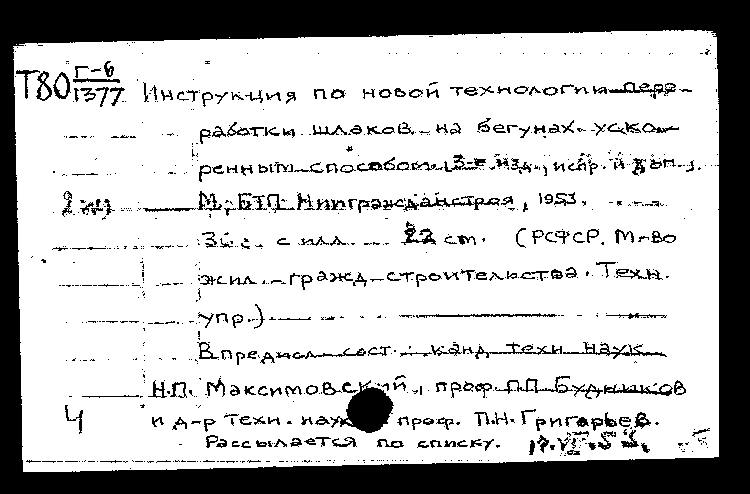 Т80 Г-6/1377 Инструкция по новой технологии пере-
работки шлаков на бегунах уско-
ренным способом. (3-е изд., испр. и доп.).
2 экз М., БТП Ниигражданстроя, 1953.
36 с. с илл. 22 см. (РСФСР. М-во
жил.-гражд. строительства. Техн.
упр.)
В предисл. сост.: канд. техн. наук
Н.П. Максимовский, проф. П.П. Будников
4 и д-р техн. наук проф. П.Н. Григорьев.
Рассылается по списку.